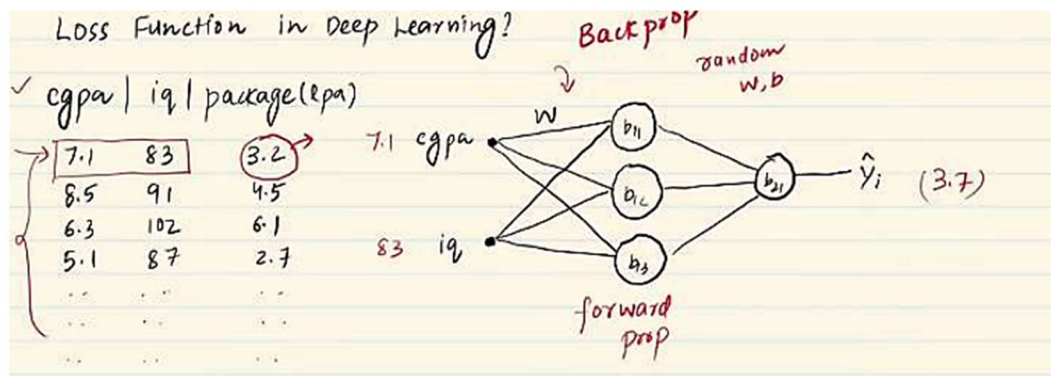 Loss Function in Deep Learning?
Backprop
random
w,b
cgpa | iq | package(lpa)
7.1 83 3.2
8.5 91 4.5
6.3 102 6.1
5.1 87 2.7
.. .. ..
.. .. ..
.. .. ..
W
7.1 cgpa
83 iq
b11
b12
b13
b21
ŷi (3.7)
forward
prop